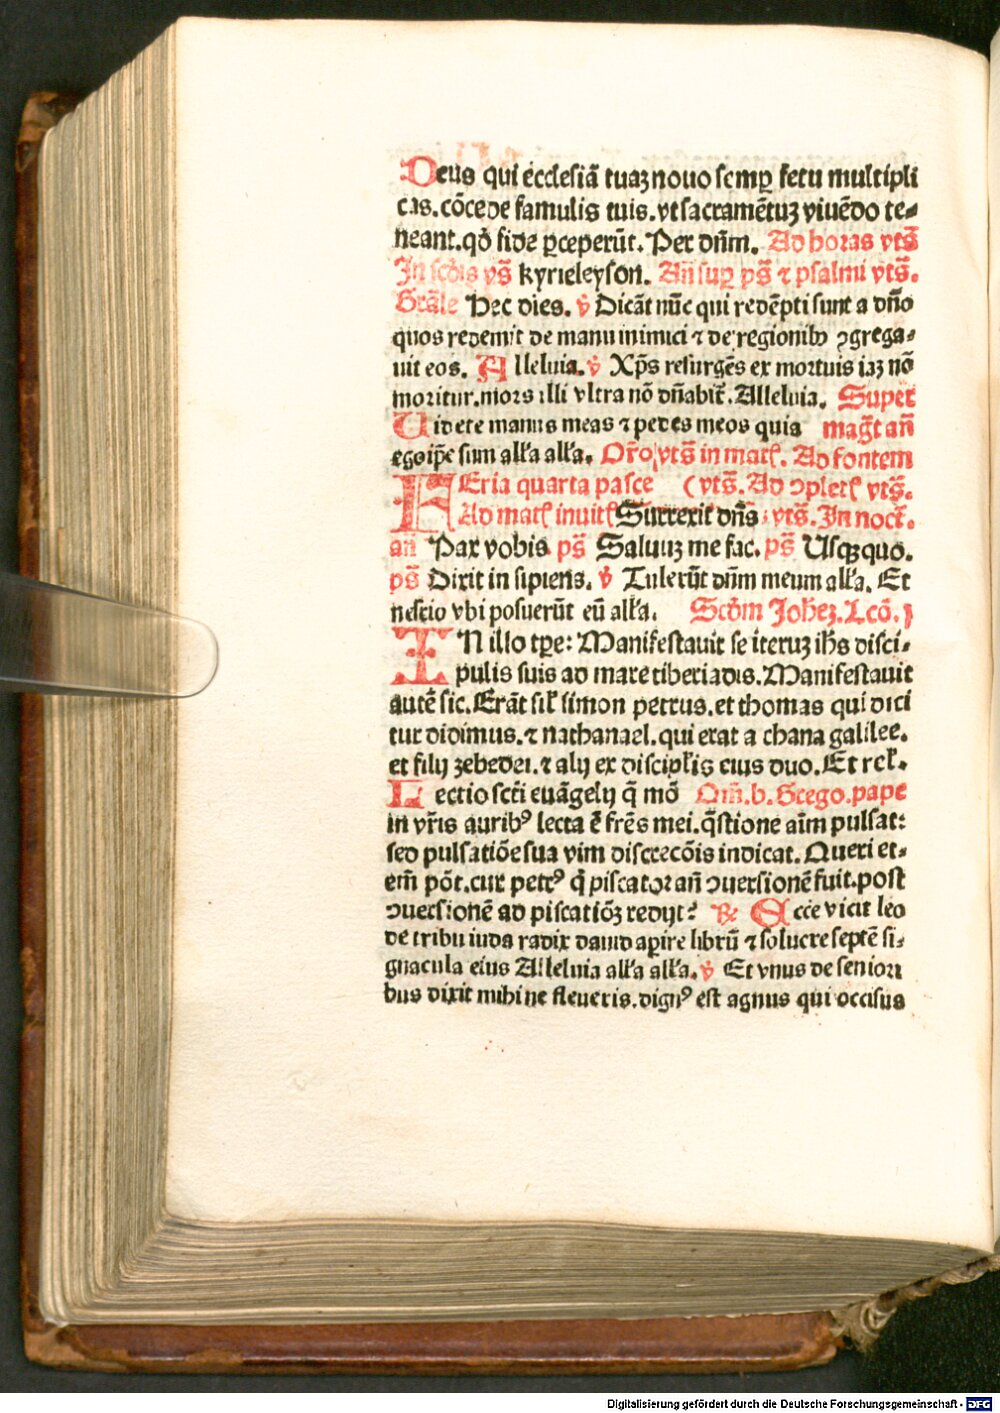 Deus qui ecclesiā tuaꝫ nouo semꝑ fetu multipli
cas. cōcede famulis tuis. vt sacramētuꝫ viuēdo te⸗
neant. qđ fide ꝑceperūt. Per dn̄m. Ad horas vts̄
In scd̄is ps̄ kyrieleyson. An̄ suꝑ ps̄ ⁊ psalmi vts̄.
Grāle Hec dies. ℣ Dicāt nūc qui redēpti sunt a dn̄o
quos redemit de manu inimici ⁊ de regionibꝰ ꝯgrega⸗
uit eos. Alleluia. ℣ Xp̄s resurgēs ex mortuis iaꝫ nō
moritur. mors illi vltra nō dn̄abit̄. Alleluia. Super
Uidete manus meas ⁊ pedes meos quia mag̃t an̄
ego ip̄e sum alľa alľa. Or̄o vts̄ in matꝭ. Ad fontem
FEria quarta pasce ( vts̄. Ad ꝯpletꝭ vts̄.
Ad matꝭ inuitꝭ Surrexit dn̄s vts̄. In noct̄.
an̄ Pax vobis ps̄ Saluuꝫ me fac. ps̄ Usqꝫquo.
ps̄ Dixit insipiens. ℣ Tulerūt dn̄m meum alľa. Et
nescio vbi posuerūt eū alľa. Scd̄m Joh̄eꝫ. Lcō. j
IN illo tꝑe: Manifestauit se iteruꝫ ih̄s disci⸗
pulis suis ad mare tiberiadis. Manifestauit
autē sic. Erāt siľ simon petrus. et thomas qui dici
tur didimus. ⁊ nathanael. qui erat a chana galilee.
et filij zebedei. ⁊ alij ex discipľis eius duo. Et reľ.
Lectio scti euāgelij q̄ mō Om̄. b. Grego. pape
in vr̄is auribꝰ lecta ē fr̄es mei. q̄stione aīm pulsat:
sed pulsatiōe sua vim discrecōis indicat. Queri et⸗
em̄ pōt. cur petrꝰ q̄ piscator an̄ ꝯuersionē fuit. post
ꝯuersionē ad piscatiōꝫ redijt? ℟ Ecce vicit leo
de tribu iuda radix dauid aperire librū ⁊ soluere septē si⸗
gnacula eius Alleluia alľa alľa. ℣ Et vnus de seniori
bus dixit mihi ne fleueris. dignꝰ est agnus qui occisus
Digitalisierung gefördert durch die Deutsche Forschungsgemeinschaft - DFG